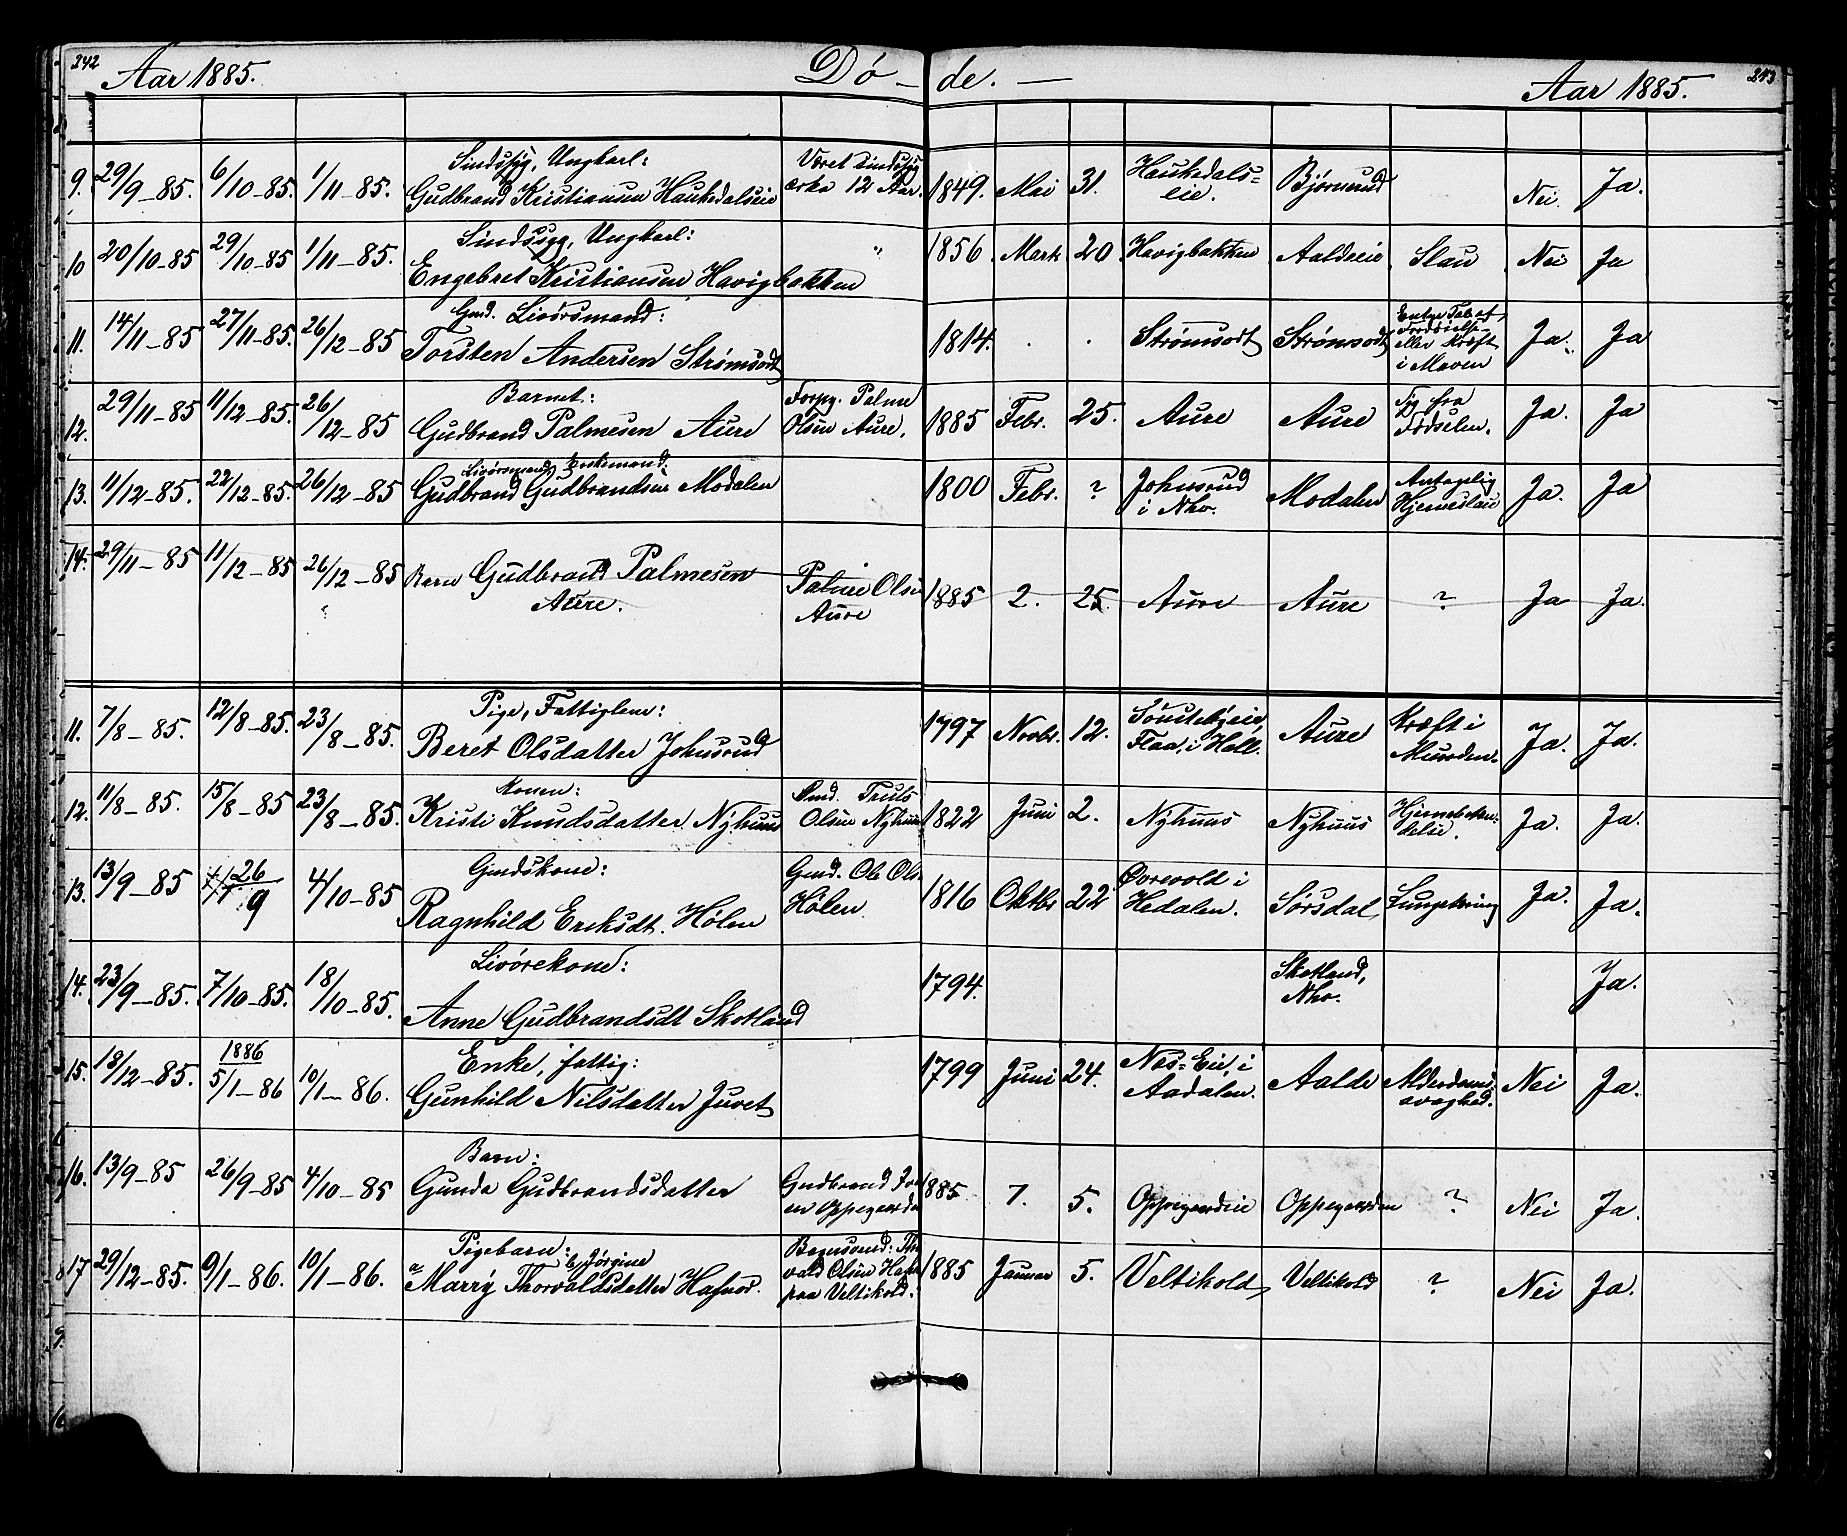 242 Aar 1885. Dø – de. — Aar 1885. 243
9. 29/9–85. 6/10–85. 1/11–85. Sindssyg, Ungkarl: Været
Gudbrand Kristiansen Haukedalseie 12 Aar. 1849. Mai 31. Haukedals=eie. Bjørnerud Nei. Ja.
10 20/10–85 29/10–85 1/11–85. Sindssyg, Ungkarl: "
Engebret Kristiansen Havigbakken 1856 Marts 20 Havigbakken Aaldseie Slau Nei Ja
11. 14/11–85 27/11–85. 26/12–85 Gmd. Livørsmand:
Torsten Andersen Strømsodt 1814. . . Strømsodt Strømsodt eller Kræft i Maven Ja. Ja
12. 29/11–85 11/12–85. 26/12–85 Barnet: Palme
Gudbrand Palmesen Aure Olsen Aure. 1885 Febr. 25. Aure Aure Syg fra Fødselen. Ja. Ja
13. 11/12–85. 22/12–85. 26/12–85 Livørsmand Enkemand:
Gudbrand Gudbrandsen Modalen 1800 Febr. ? Johnsrud i Nho. Modalen Antagelig Hjerneslau Ja. Ja
14. 29/11–85 11/12–85 26/12–85 Barn Gudbrand Palmesen Palme Olsen 1885 2. 25. Aure Aure ? Ja Ja.
Aure. Aure
11. 7/8–85. 12/8–85. 23/8–85. Pige, Fattiglem:
Beret Olsdatter Johnsrud 1797 Novbr. 12. Flaa, i Hall. Aure Kræft i Munden. Ja. Ja.
12. 11/8–85. 15/8–85 23/8–85. Konen: Gmd. Truls
Kristi Knudsdatter Nyhuus Olsen Nyhuus 1822 Juni 2. Nyhuus Nyhuus Ja. Ja.
13. 13/9–85 26/9 4/10–85 Gmdskone: Gmd. Ole Ols.
Ragnhild Eriksdt. Hølen Hølen 1816 Oktbr 22 Øvrevold i Hedalen. Sørsdal Ja. Ja.
14. 23/9–85. 7/10–85. 18/10–85. Livørekone:
Anne Gudbrandsdt Skotland 1794. Skotland, Nho. Ja.
15. 18/12–85. 1886 5/1–86 10/1–86. Enke, fattig:
Gunhild Nilsdatter Juvet 1799 Juni 24. Næs=Eie, i Aadalen. Aalde Alderdoms svaghed. Nei Ja.
16. 13/9–85 26/9–85 4/10–85 Barn:
Gunda Gudbrandsdatter Gudbrand
1885 7. 5. Oppegaardeie Oppegaarden ? Nei Ja.
17 29/12–85. 9/1–86. 10/1–86. Pigebarn: Jørgine
Marry Thorvaldsdatter Hafnor. vald Olsen
paa Veltikold. 1885 Januar 5. Veltikold Veltikold ? Nei Ja.